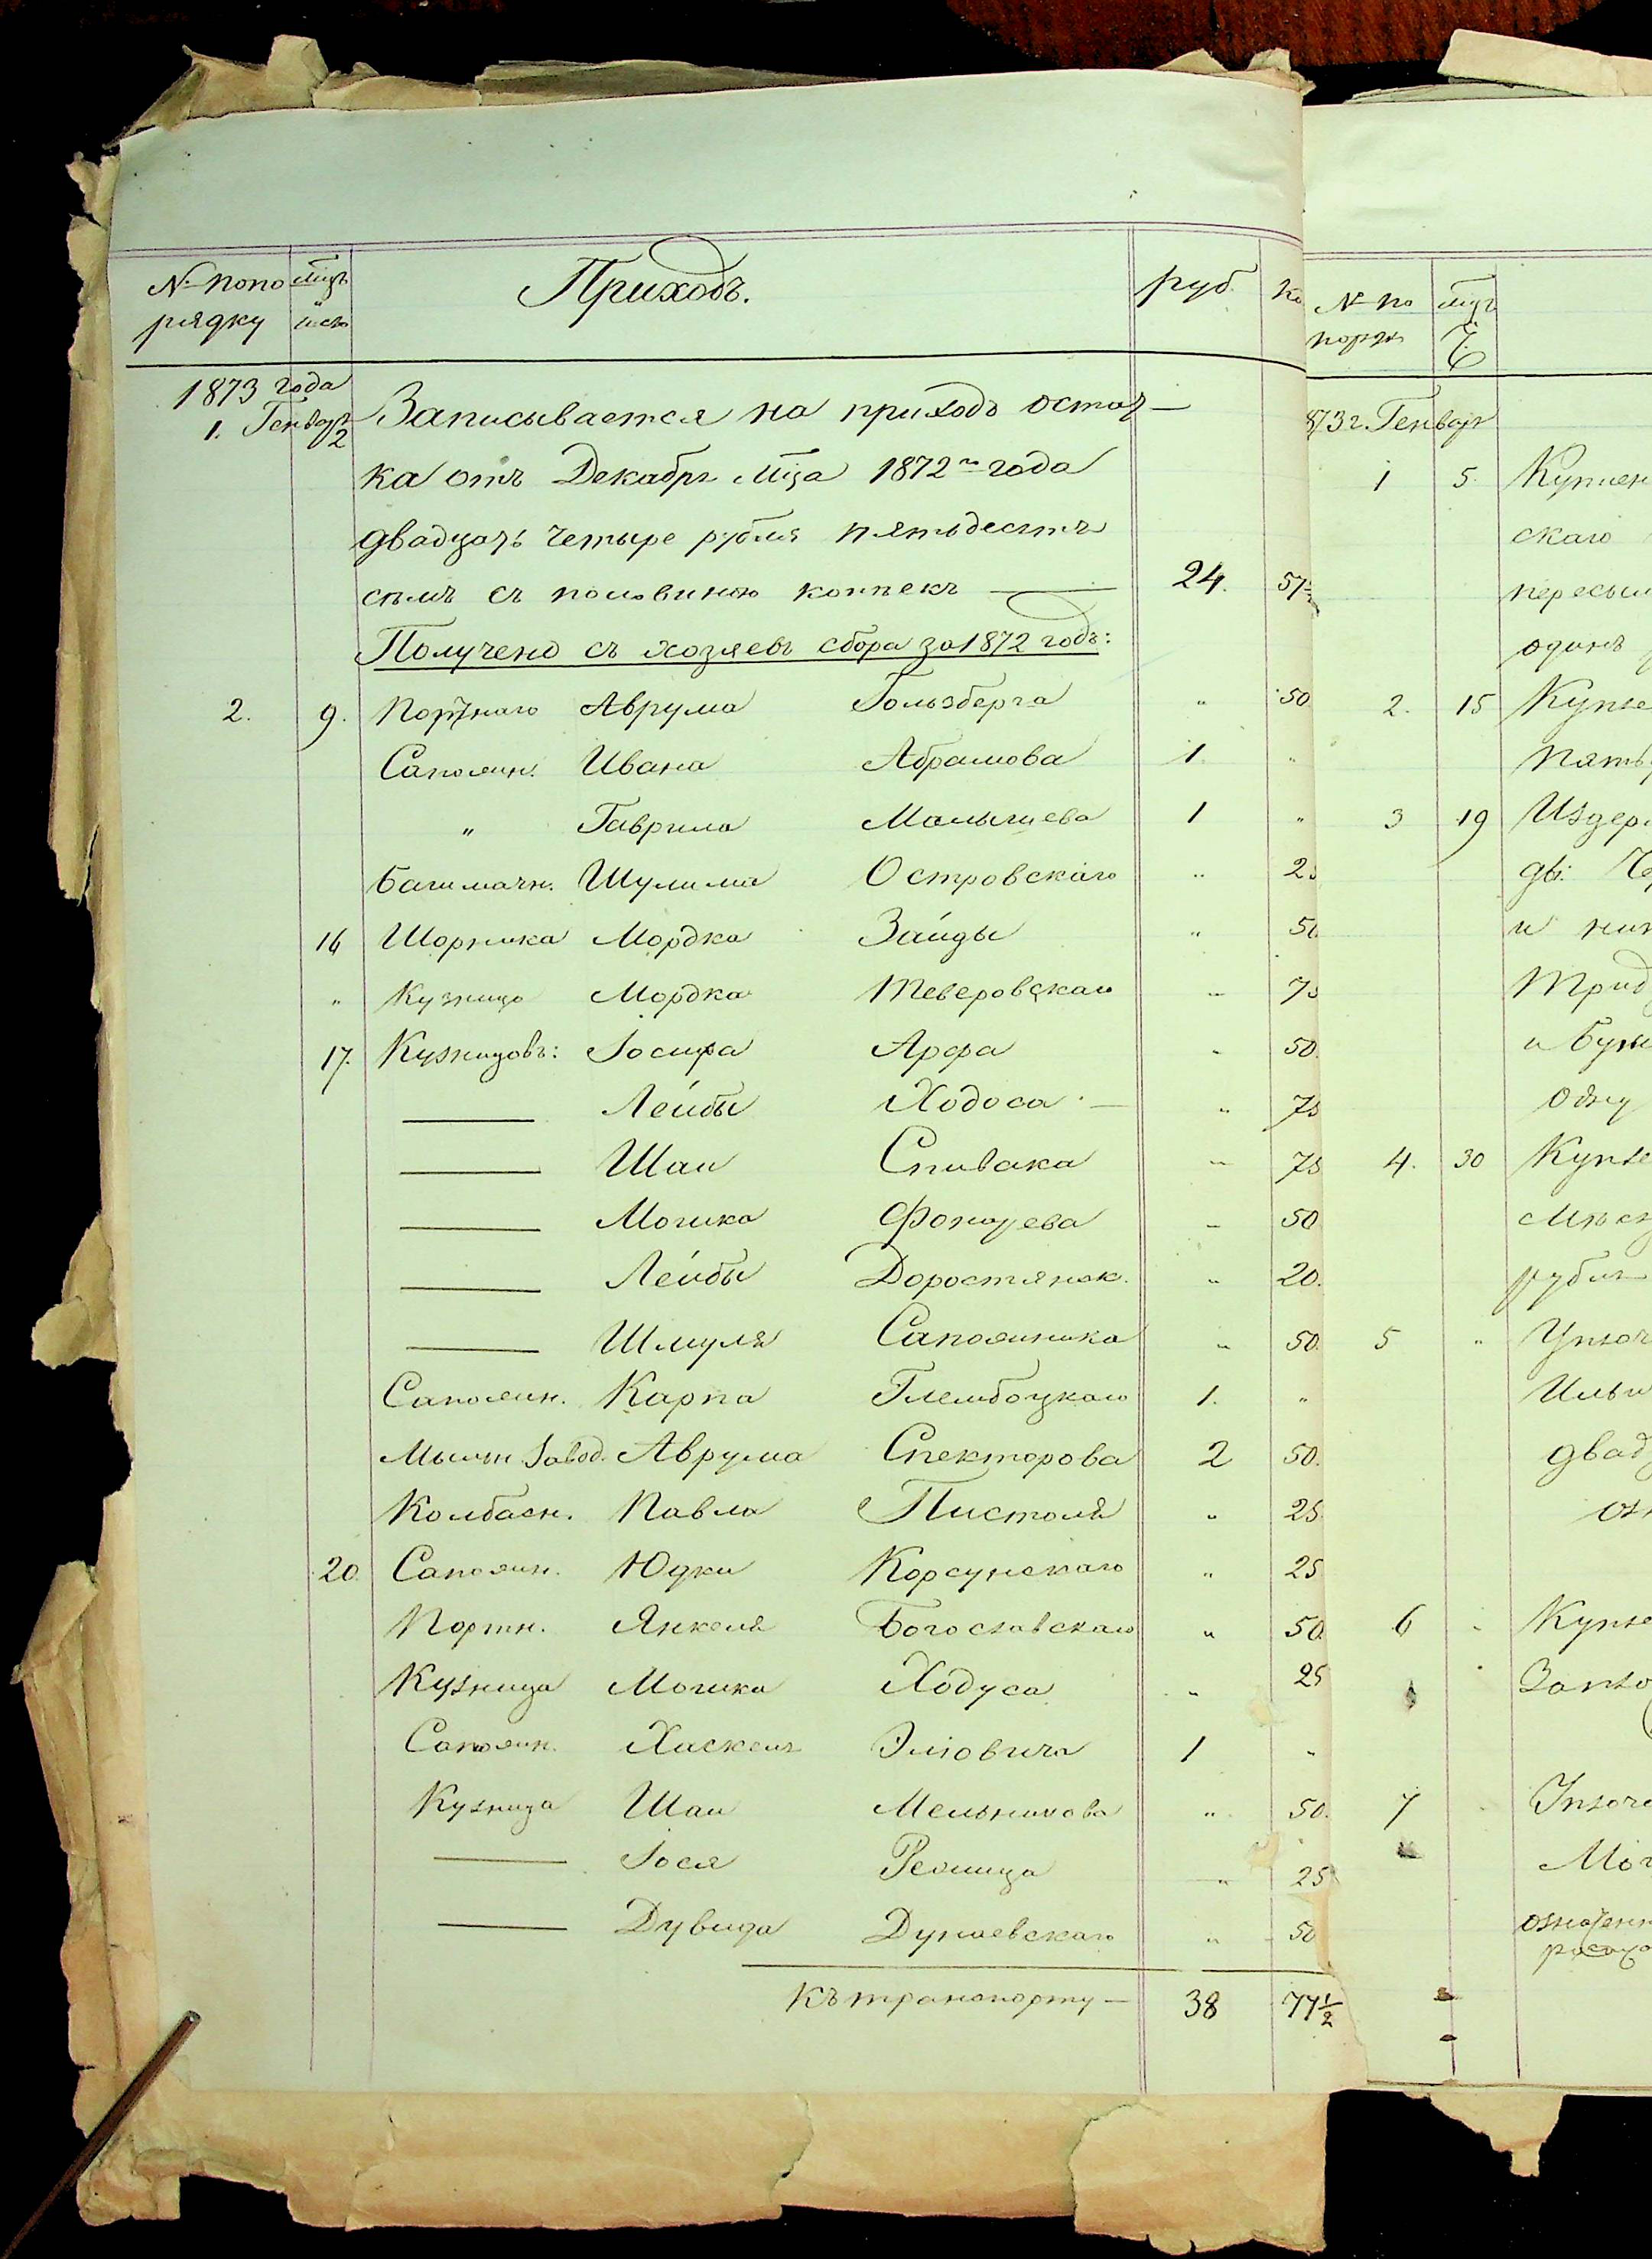 № по по мцъ Приходъ. руб. ко
рядку число
1873 года
1. Генваря 2 Записывается на приходъ остат-
ка отъ Декабря Мца 1872го года
двадцать четыре рубля пятьдесятъ
семъ съ половиною копѣекъ — 24. 57½
Получено съ хозяевъ сбора за 1872 годъ:
2. 9. Портнаго Аврума Гользберга " 50
Сапожн. Ивана Абрамова 1. "
" Гаврила Малышева 1 "
Башмачн. Шулима Островскаго " 25
16 Шорника Мордка Зайды " 50
" Кузница Мордка Теверовскаго " 75
17. Кузнецовъ: Іосифа Арфа " 50.
— Лейбы Ходоса — " 75
— Шаи Спивака " 75
— Мошка " 50
— Лейбы Доростянск. " 20.
— Шмуля Сапожника " 50.
Сапожн. Карпа Глембоцкаго 1. "
Мыльн Завод. Аврума Спекторова 2 50.
Колбасн. Павла Пистоля " 25
20. Сапожн. Юдки Корсунскаго " 25
Портн. Янкеля Богославскаго " 50.
Кузница Мошка Ходуса " 25
Сапожн. Хаскель Эліовича 1 "
Кузница Шаи Мельникова " 50.
— Іося " 25
— Дувида Дунаевскаго " 50
Къ транспорту — 38 77½
№ по мцъ
поряд Ч.
873 г. Генваря
1 5.
скаго
одинъ
2. 15
пять
3 19 Издер
и
Трид
и
одну
4. 30
рубля
5 "
двад
6 "
7